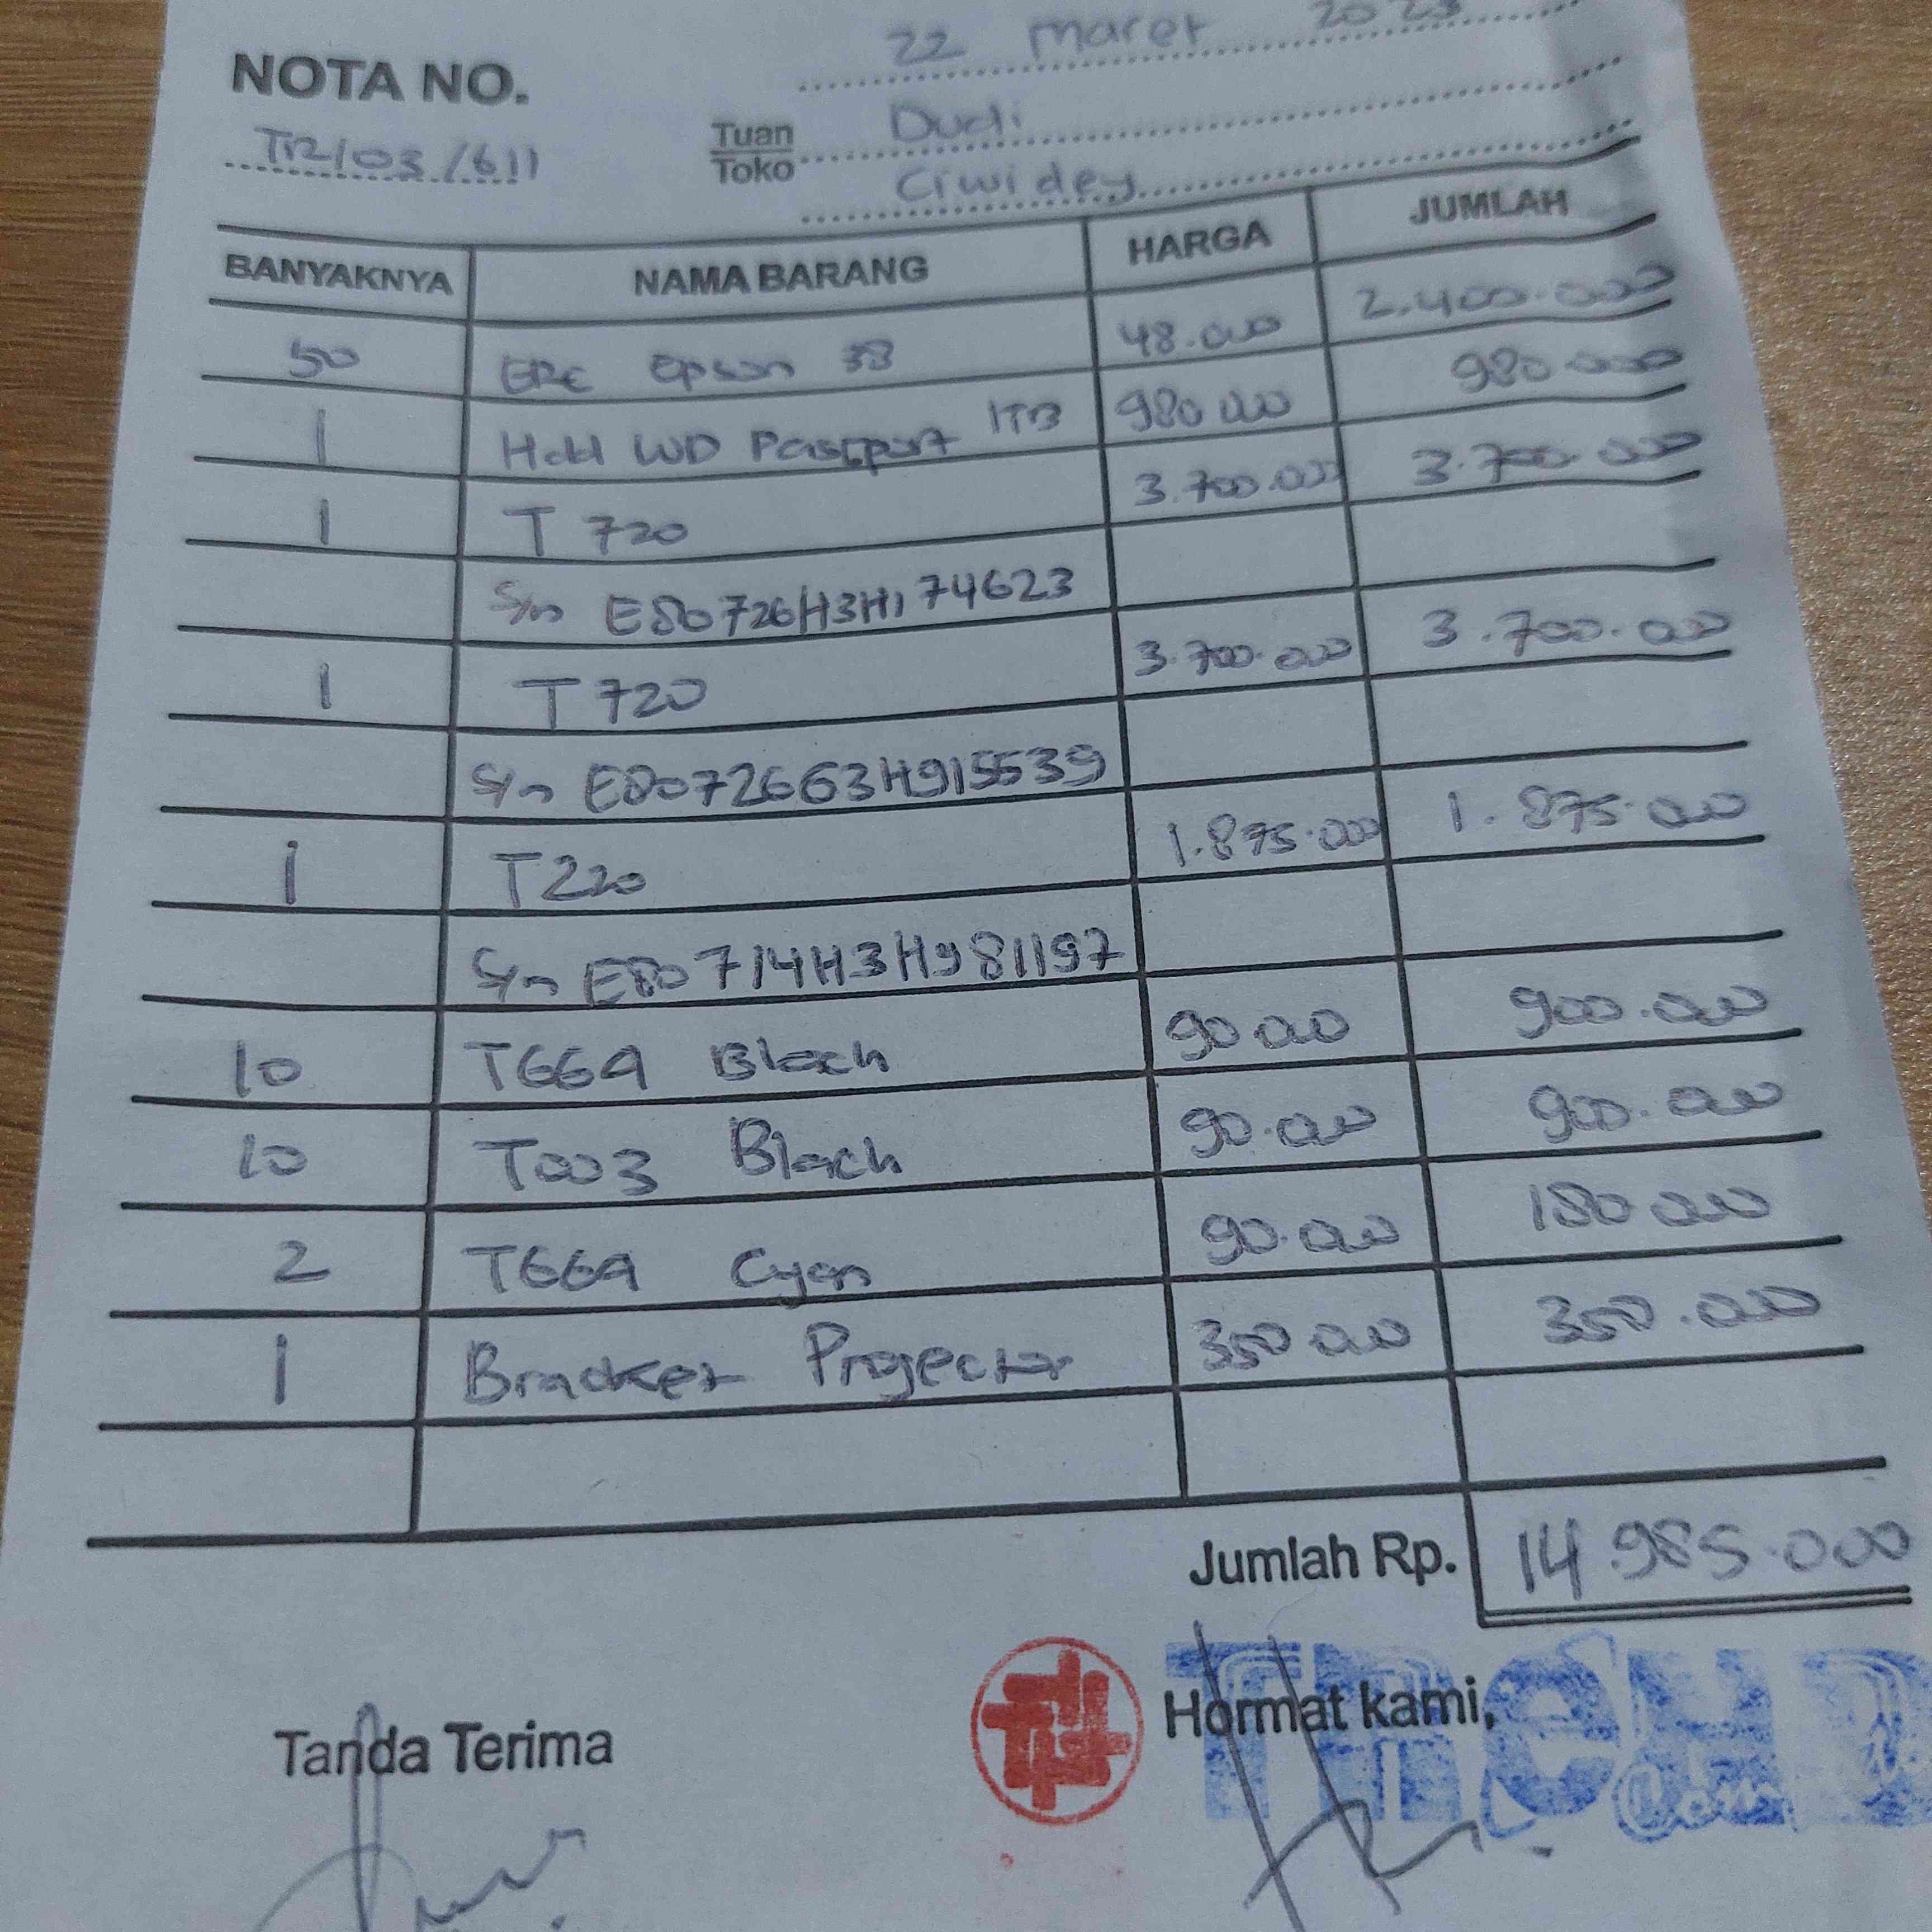 22 Maret 2023
NOTA NO.
TR/03/611
Tuan
Toko
Dudi
Ciwidey
BANYAKNYA NAMA BARANG HARGA JUMLAH
50 ERC Epson 38 48.000 2.400.000
1 Hdd WD Passport 1TB 980.000 980.000
1 T 720 3.700.000 3.700.000
S/n E80726H3H174623
1 T 720 3.700.000 3.700.000
S/n E8072663H915539
1 T220 1.875.000 1.875.000
S/n E80714H3H981197
10 T664 Black 90.000 900.000
10 T003 Black 90.000 900.000
2 T664 Cyan 90.000 180.000
1 Bracket Projector 350.000 350.000
Jumlah Rp. 14.985.000
Tanda Terima Hormat kami,